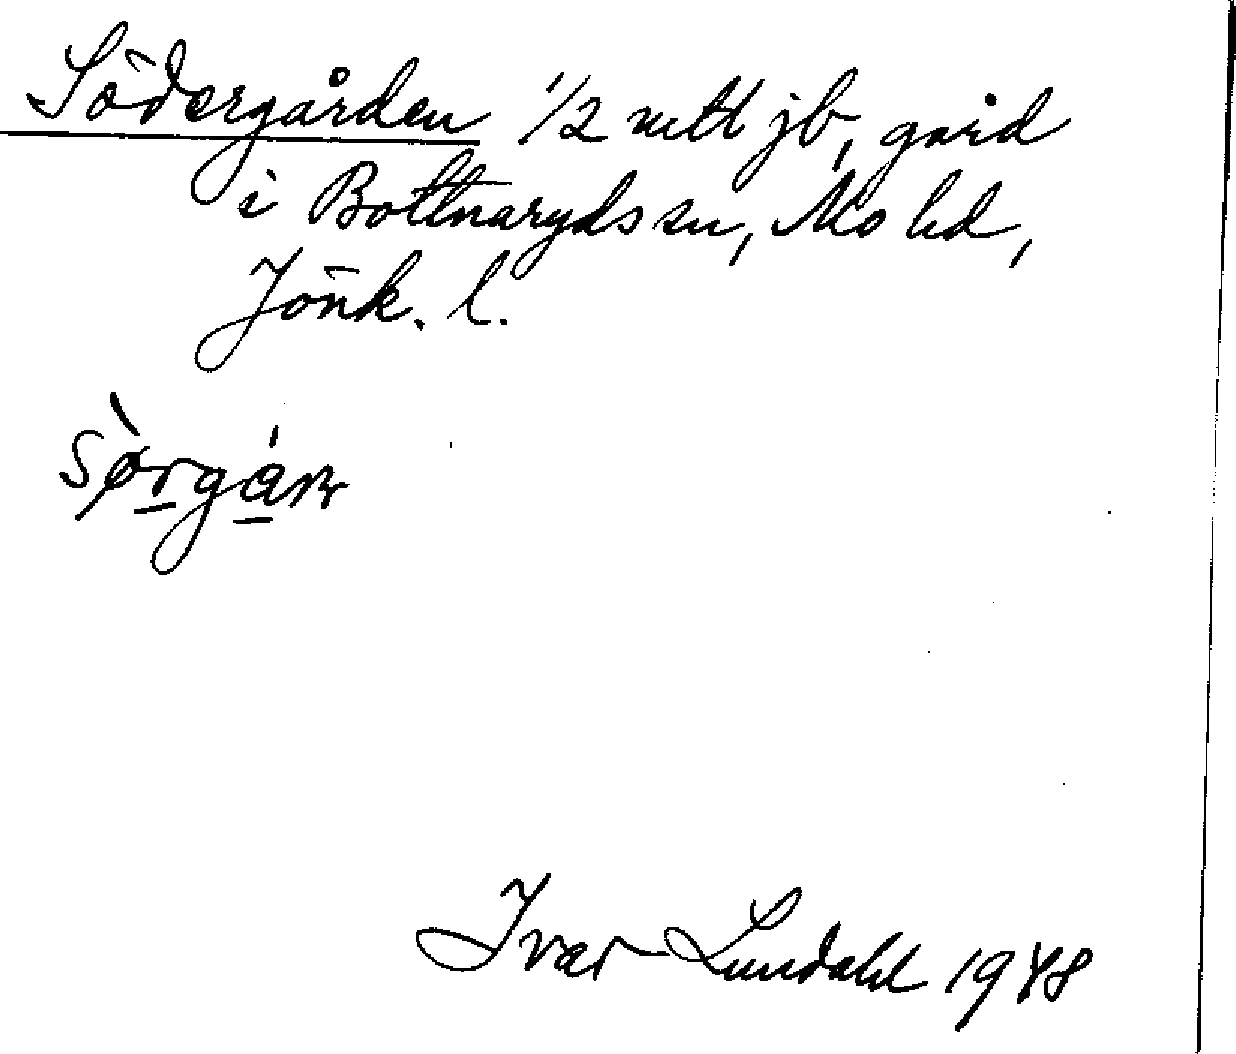 Södergården 1/2 mtl jb, gård
i Bottnaryds sn, Mo hd,
Jönk. l.
Ivar Lundahl 1948